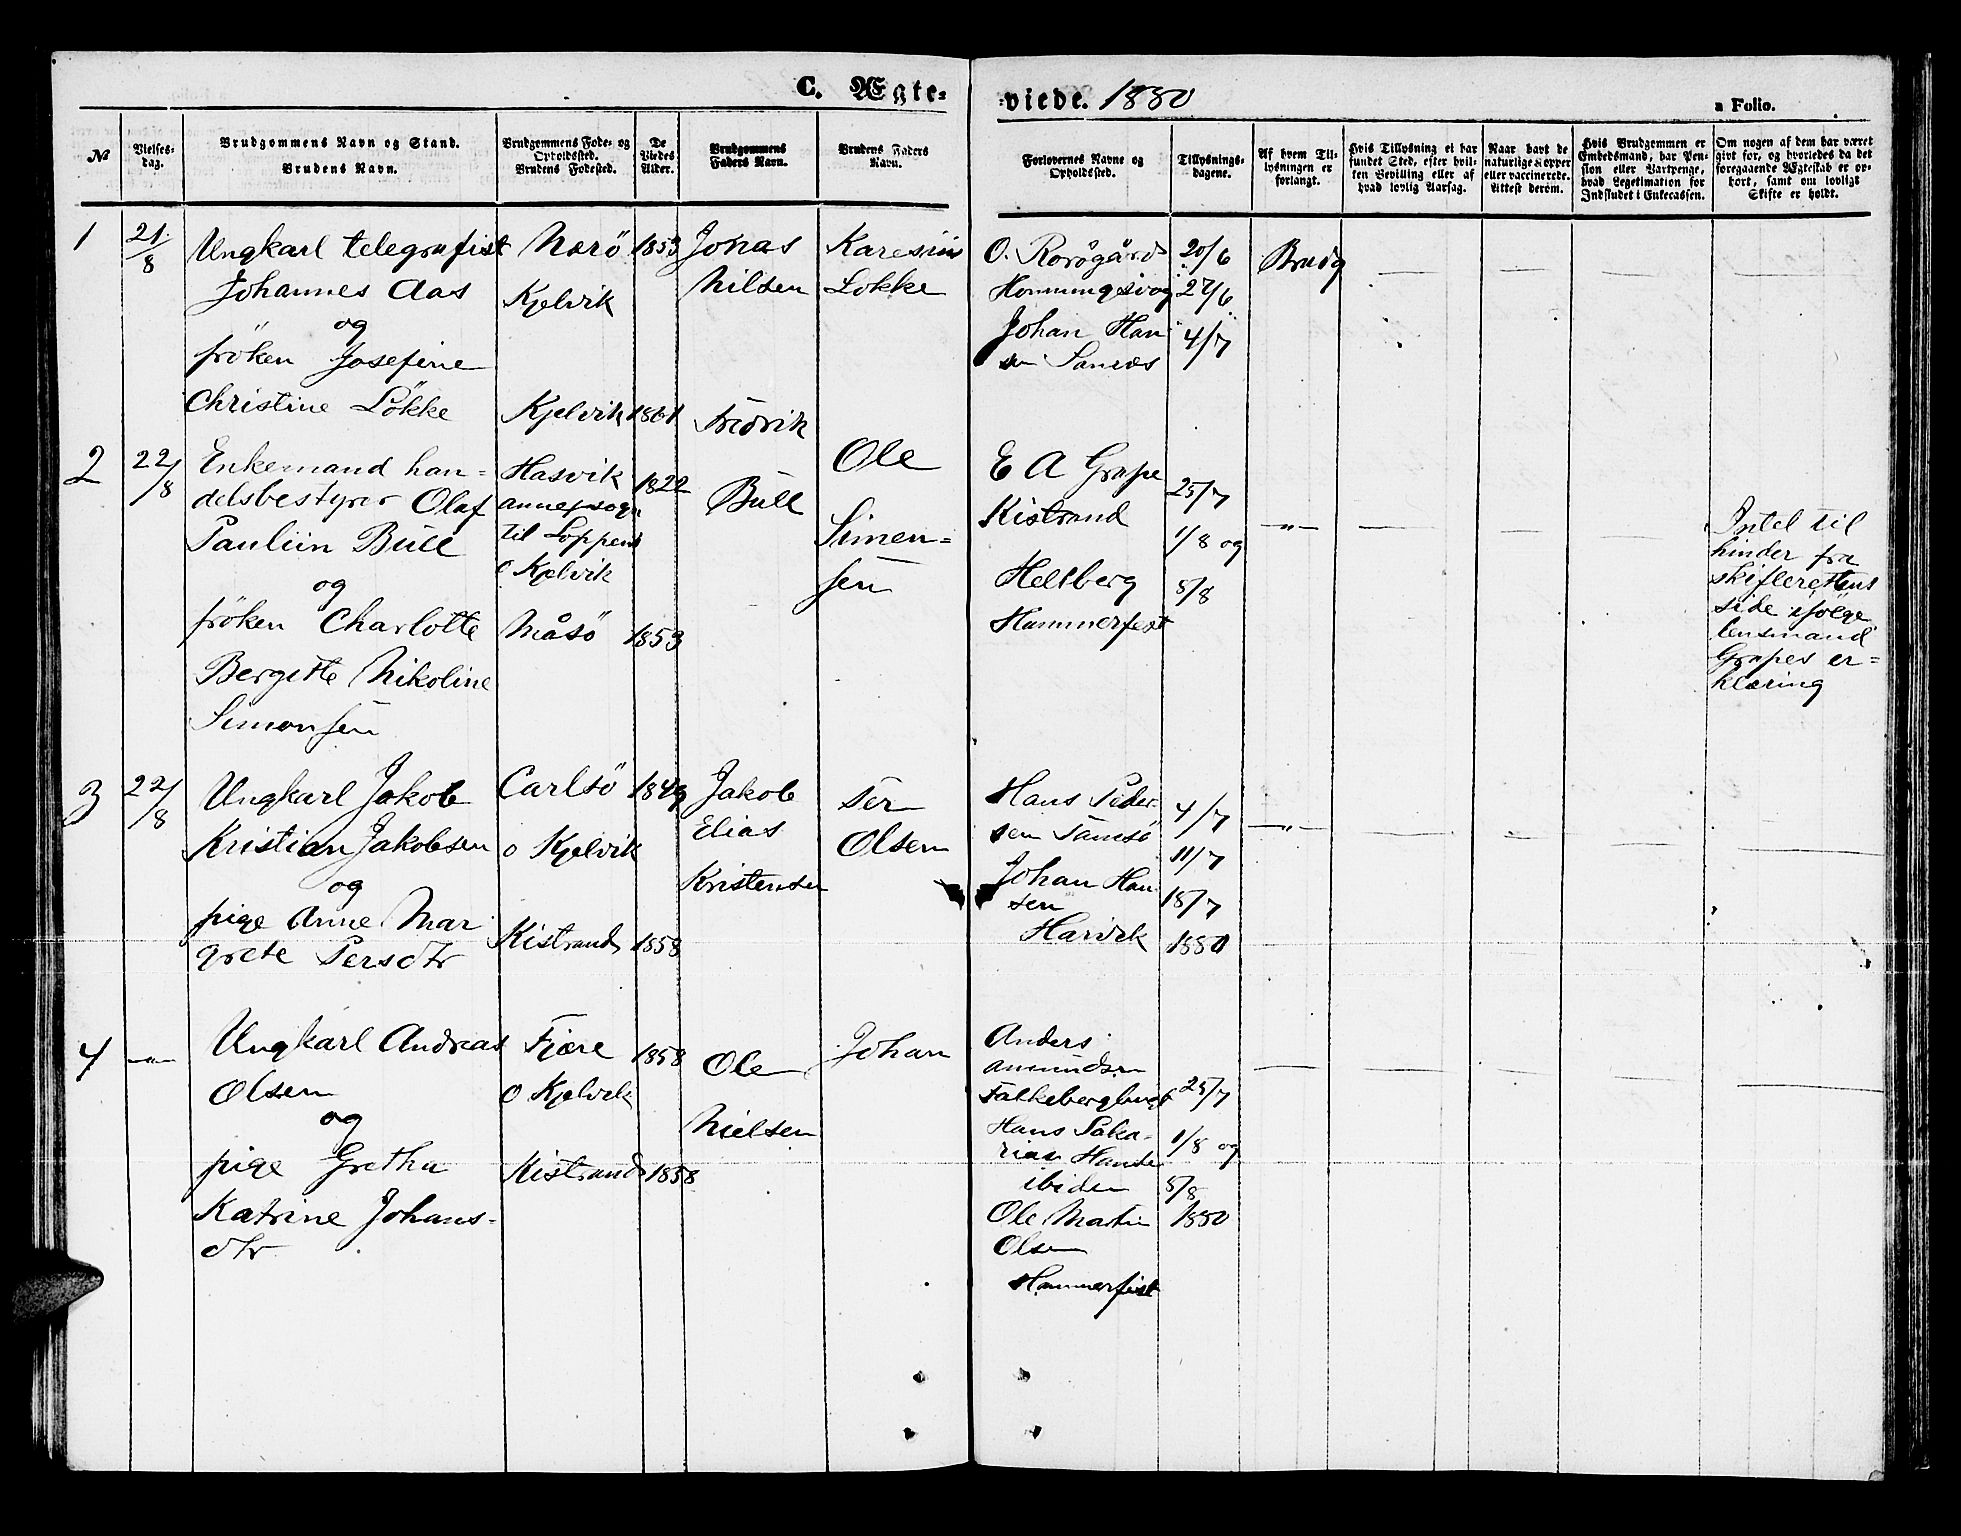 C. Ægte-
viede. 1880
a Folio.
№
Vielses-
dag.
Brudgommens Navn og Stand.
Brudens Navn.
Brudgommens Føde- og
Opholdssted.
Brudens Fødested.
De
Viedes
Alder.
Brudgommens
Faders Navn.
Brudens Faders
Navn.
Forlovernes Navne og
Opholdssted.
Tillysnings-
dagene.
Af hvem Til-
lysningen er
forlangt.
Hvis Tillysning ei har
fundet Sted, efter hvil-
ken Bevilling eller af
hvad lovlig Aarsag.
Naar havt de
naturlige Kopper
eller vaccinerede.
Attest derom.
Hvis Brudgommen er
Embedsmand, har Pen-
sion eller Vartpenge,
hvad Legitimation for
Indskudet i Enkecassen.
Om nogen af dem har været
givt før, og hvorledes da det
foregaaende Ægteskab er op-
hørt, samt om lovligt
Skifte er holdt.
1
21/8
Ungkarl telegrafist
Johannes Aas
og
fröken Josefine
Christine Lökke
Nærö
Kjelvik
Kjelvik
1853
1861
Jonas
Nilsen
Karesius
Lokke
O. Rorögård
Honningsvog
Johan Han
sen Sarnes
20/6
27/6
4/7
Brudg
2
22/8
Enkemand han-
delsbestyrer Olaf
Pauliin Bull
og
fröken Charlotte
Bergitte Nikoline
Simonsen
Hasvik
annexsogn
til Loppens
o Kjelvik
Måsö
1822
1853
Fredrik
Bull
Ole
Simen-
sen
E A Grape
Kistrand
Heltberg
Hammerfest
25/7
1/8 og
8/8
—"—
Intet til
hinder fra
skifterettens
side ifölge
lensmand
Grapes er-
klæring
3
22/8
Ungkarl Jakob
Kristian Jakobsen
og
pige Anne Mar
grete Persdtr
Carlsö
o Kjelvik
Kistrand
1849
1858
Jakob
Elias
Kristensen
Per
Olsen
Hans Peder-
sen Tamsö
Johan Han
sen
Harvik
4/7
11/7
18/7
1880
—"—
4
—"—
Ungkarl Andreas
Olsen
og
pige Grethe
Katrine Johans-
dtr
Fjære
o Kjelvik
Kistrand
1858
1858
Ole
Nielsen
Johan
Anders
Amundsen
Hans Saka-
rias Hansen
ibiden
Ole Martin
Olsen
Hammerfest
25/7
1/8 og
8/8
1880